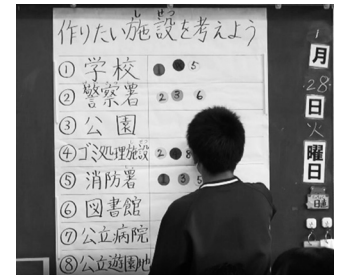 しせつ
作りたい施設を考えよう
① 学校 1 5
② 警察署 2 3 6
③ 公園
④ ゴミ処理施設 2 8
⑤ 消防署 1 3 5
⑥ 図書館
⑦ 公立病院
⑧ 公立遊園地
1
月
28
日
火
曜
日
日